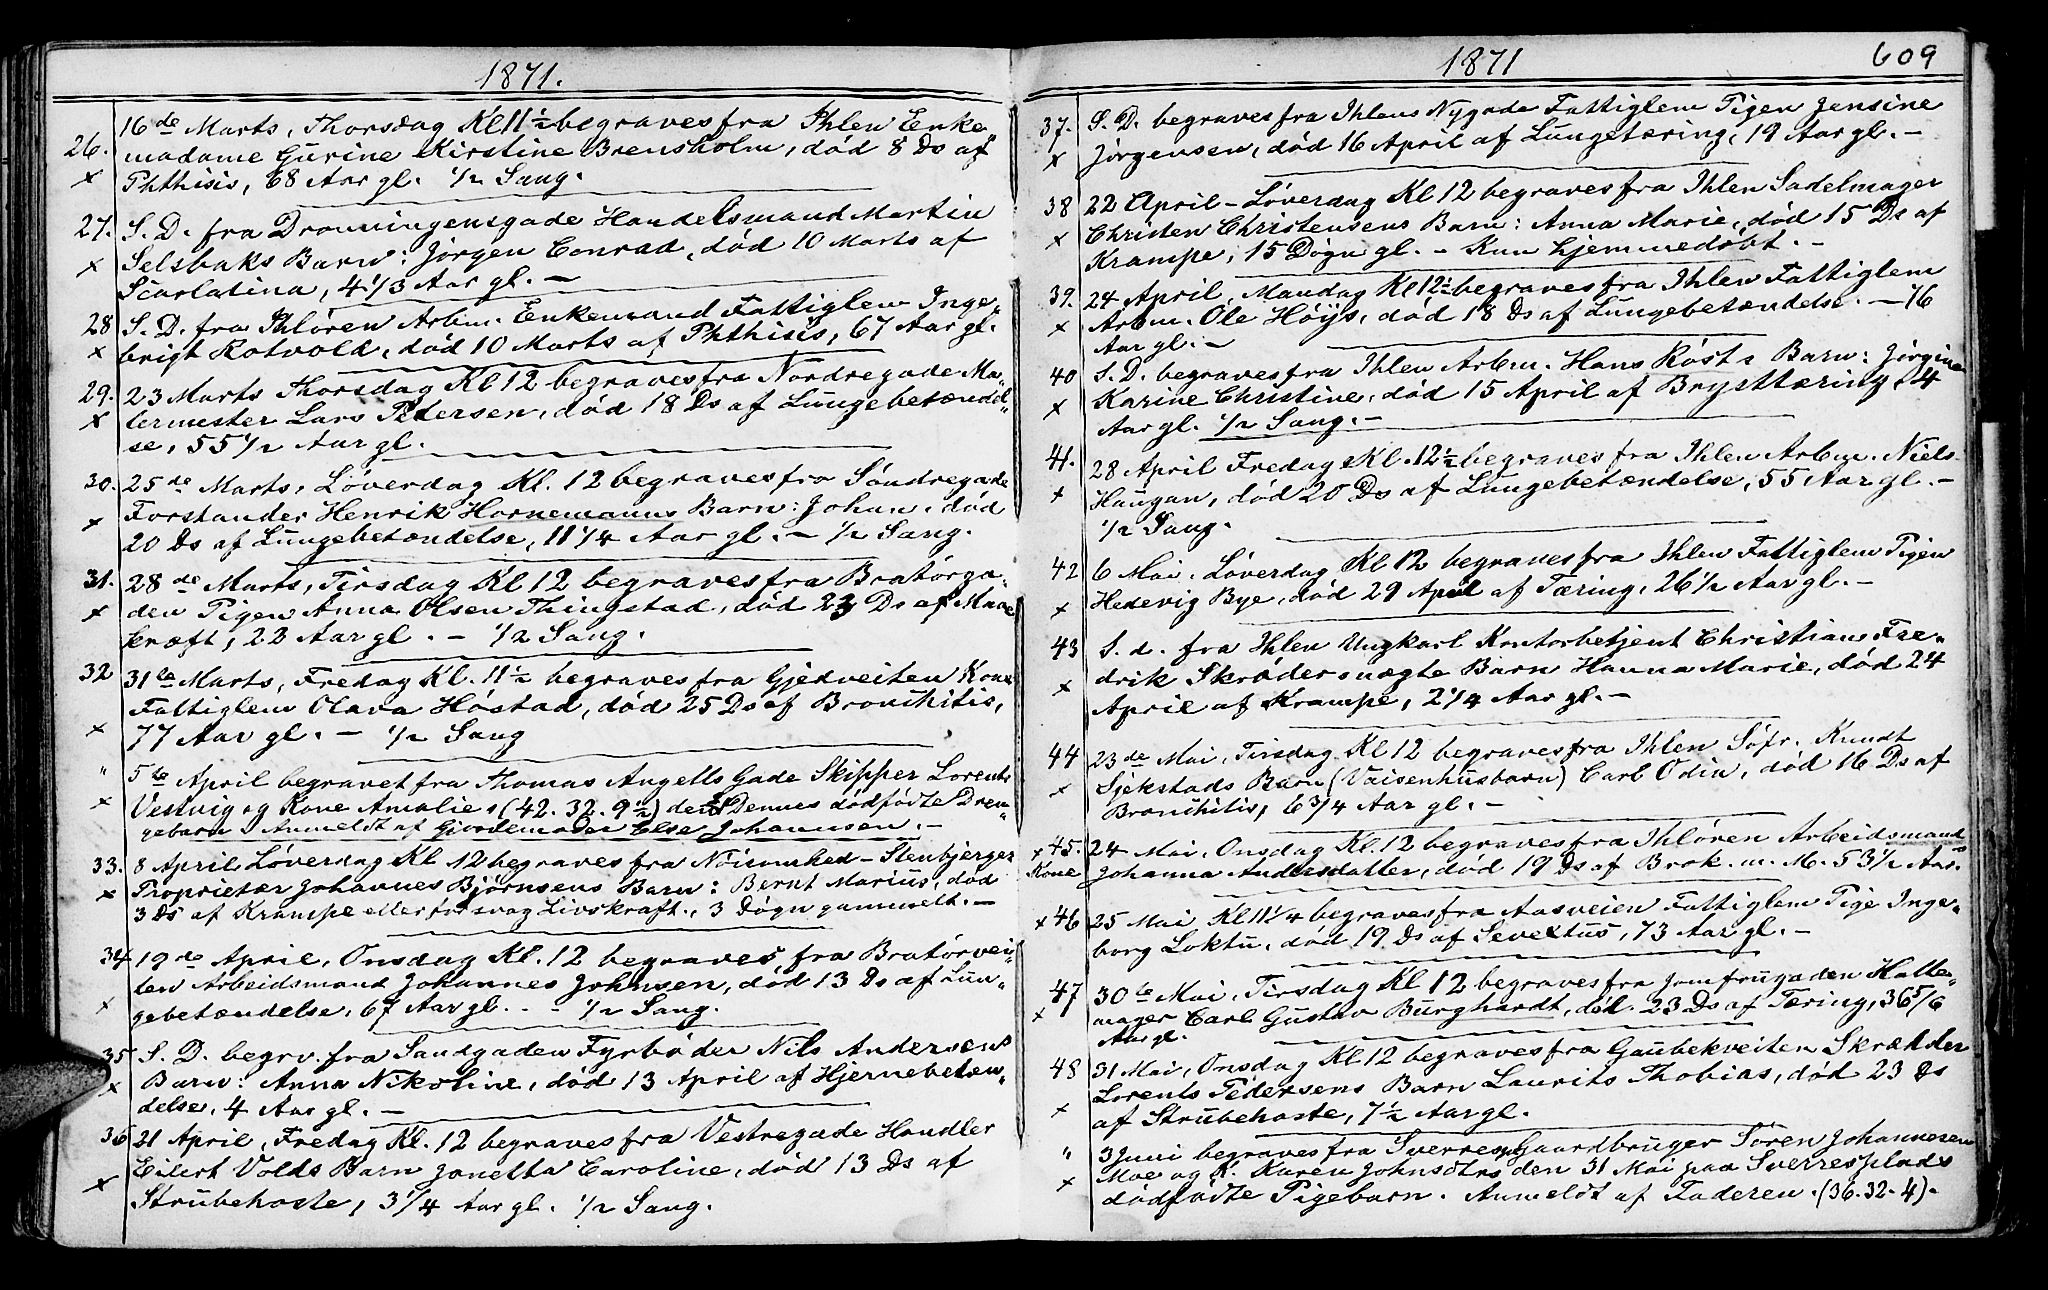 1871.
26. 16de Marts, Thorsdag Kl 11½ begraves fra Ihlen Enke„
madame Gurine Kirstine Brensholm, død 8 Ds af
× Phthisis, 68 Aar gl. ½ Sang.
27. S. D. fra Dronningensgade Handelsmand Martin
× Selsbaks Barn: Jørgen Conrad, død 10 Marts af
Scarlatina, 4 1/3 Aar gl. —
28 S. D. fra Ihløren Arbm. Enkemand Fattiglem Inge„
× brigt Rotvold, død 10 Marts af Phthisis, 67 Aar gl.
29. 23 Marts Thorsdag Kl 12 begraves fra Nordregade Ma„
× lermester Lars Petersen, død 18 Ds af Lungebetændel„
se, 55 ½ Aar gl.
30. 25de Marts, Løverdag Kl. 12 begraves fra Søndregade
× Forstander Henrik Hornemanns Barn: Johan, død
20 Ds af Lungebetændelse, 11 1/4 Aar gl. — ½ Sang.
31. 28de Marts, Tirsdag Kl 12 begraves fra Bratørga„
× den Pigen Anna Olsen Thingstad, død 23 Ds af Mave
kræft, 22 Aar gl. — ½ Sang.
32 31te Marts, Fredag Kl. 11½ begraves fra Gjedveiten Kone
Fattiglem Olava Høstad, død 25 Ds af Bronchitis,
× 77 Aar gl. — ½ Sang
" 5te April begravet fra Thomas Angells Gade Skipper Lorents
× Vestvig og Kone Amalies (42. 32. 9½) den Dennes dødfødte Dren„
gebarn Anmeldt af Gjordemoder Else Johannsen. —
33. 8 April, Løverdag Kl 12 begraves fra Nøisomhed – Stenbjerget
× Proprietær Johannes Bjørnsens Barn: Bernt Marius, død
3 Ds af Krampe eller for svag Livskraft, 3 Døgn gammelt. —
34 19de April, Onsdag Kl. 12 begraves fra Bratørvei„
ten Arbeidsmand Johannes Johnsen, død 13 Ds af Lun„
× gebetændelse, 67 Aar gl. . - ½ Sang.
35 S. D. begrv. fra Sandgaden Fyrbøder Nils Andersens
× Barn: Anna Nikoline, død 13 April af Hjernebetæn„
delse, 4 Aar gl. —
36 21 April, Fredag Kl. 12 begraves fra Vestregade Handler
× Eilert Volds Barn Janetta Caroline, død 13 Ds af
Strubehoste, 3 1/4 Aar gl. ½ Sang.
1871
609
37. S. D. begraves fra Ihlens Nygade Fattiglem Pigen Jensine
× Jørgensen, død 16 April af Lungetæring, 19 Aar gl. —
38 22 April – Løverdag Kl 12 begraves fra Ihlen Sadelmager
× Christen Christensens Barn: Anna Marie, død 15 Ds af
Krampe, 15 Døgn gl. – Kun hjemmedøbt. —
39. 24 April, Mandag Kl 12½ begraves fra Ihlen Fattiglem
× Arbm. Ole Høijs, død 18 Ds af Lungebetændelse. — 76
Aar gl. —
40 S. D. begraves fra Ihlen Arbm. Hans Røsts Barn: Jørgine
× Karine Christine, død 15 April af Brysttæring, 4
Aar gl. ½ Sang. —
41. 28 April Fredag Kl. 12½ begraves fra Ihlen Arbm. Niels
× Haugan, død 20 Ds af Lungebetændelse, 55 Aar gl. —
½ Sang.
42 6 Mai, Løverdag Kl 12 begraves fra Ihlen Fattiglem Pigen
× Hedevig Bye, død 29 April af Tæring, 26 ½ Aar gl. —
43 S. d. fra Ihlen Ungkarl Kontorbetjent Christian Fre„
× drik Skrøders uægte Barn Hanna Marie, død 24
April af Krampe, 2 1/4 Aar gl. —
44 23de Mai, Tirsdag Kl 12 begraves fra Ihlen Søfr. Knudt
× Sjekstads Barn (Vaisenhusbarn) Carl Odin, død 16 Ds af
Bronchitis, 6 3/4 Aar gl. —
× 45. 24 Mai, Onsdag Kl 12 begraves fra Ihløren Arbeidsmands
Kone Johanna Andersdatter, død 19 Ds af Brok. m. M. 53½ Aar.
× 46 25 Mai Kl 11 1/4 begraves fra Aasveien Fattiglem Pige Inge„
borg Loktu, død 19 Ds af , 73 Aar gl. —
47 30te Mai, Tirsdag Kl 12 begraves fra Jomfrugaden Hatte„
× mager Carl Gustav Burghardt, død. 23 Ds af Tæring, 36 5/6
Aar gl.
48 31 Mai, Onsdag Kl 12 begraves fra Gaubekveiten Skrædder
Lorents Pedersens Barn Laurits Thobias, død 23 Ds
× af Strubehoste, 7½ Aar gl.
" 3 Juni begraves fra Sverresp. Gaardbruger Søren Johannesen
× Moe og K. Karen Johnsdtrs den 31 Mai paa Sverresplads
dødfødte Pigebarn. Anmeldt af Faderen. (36. 32. 4).